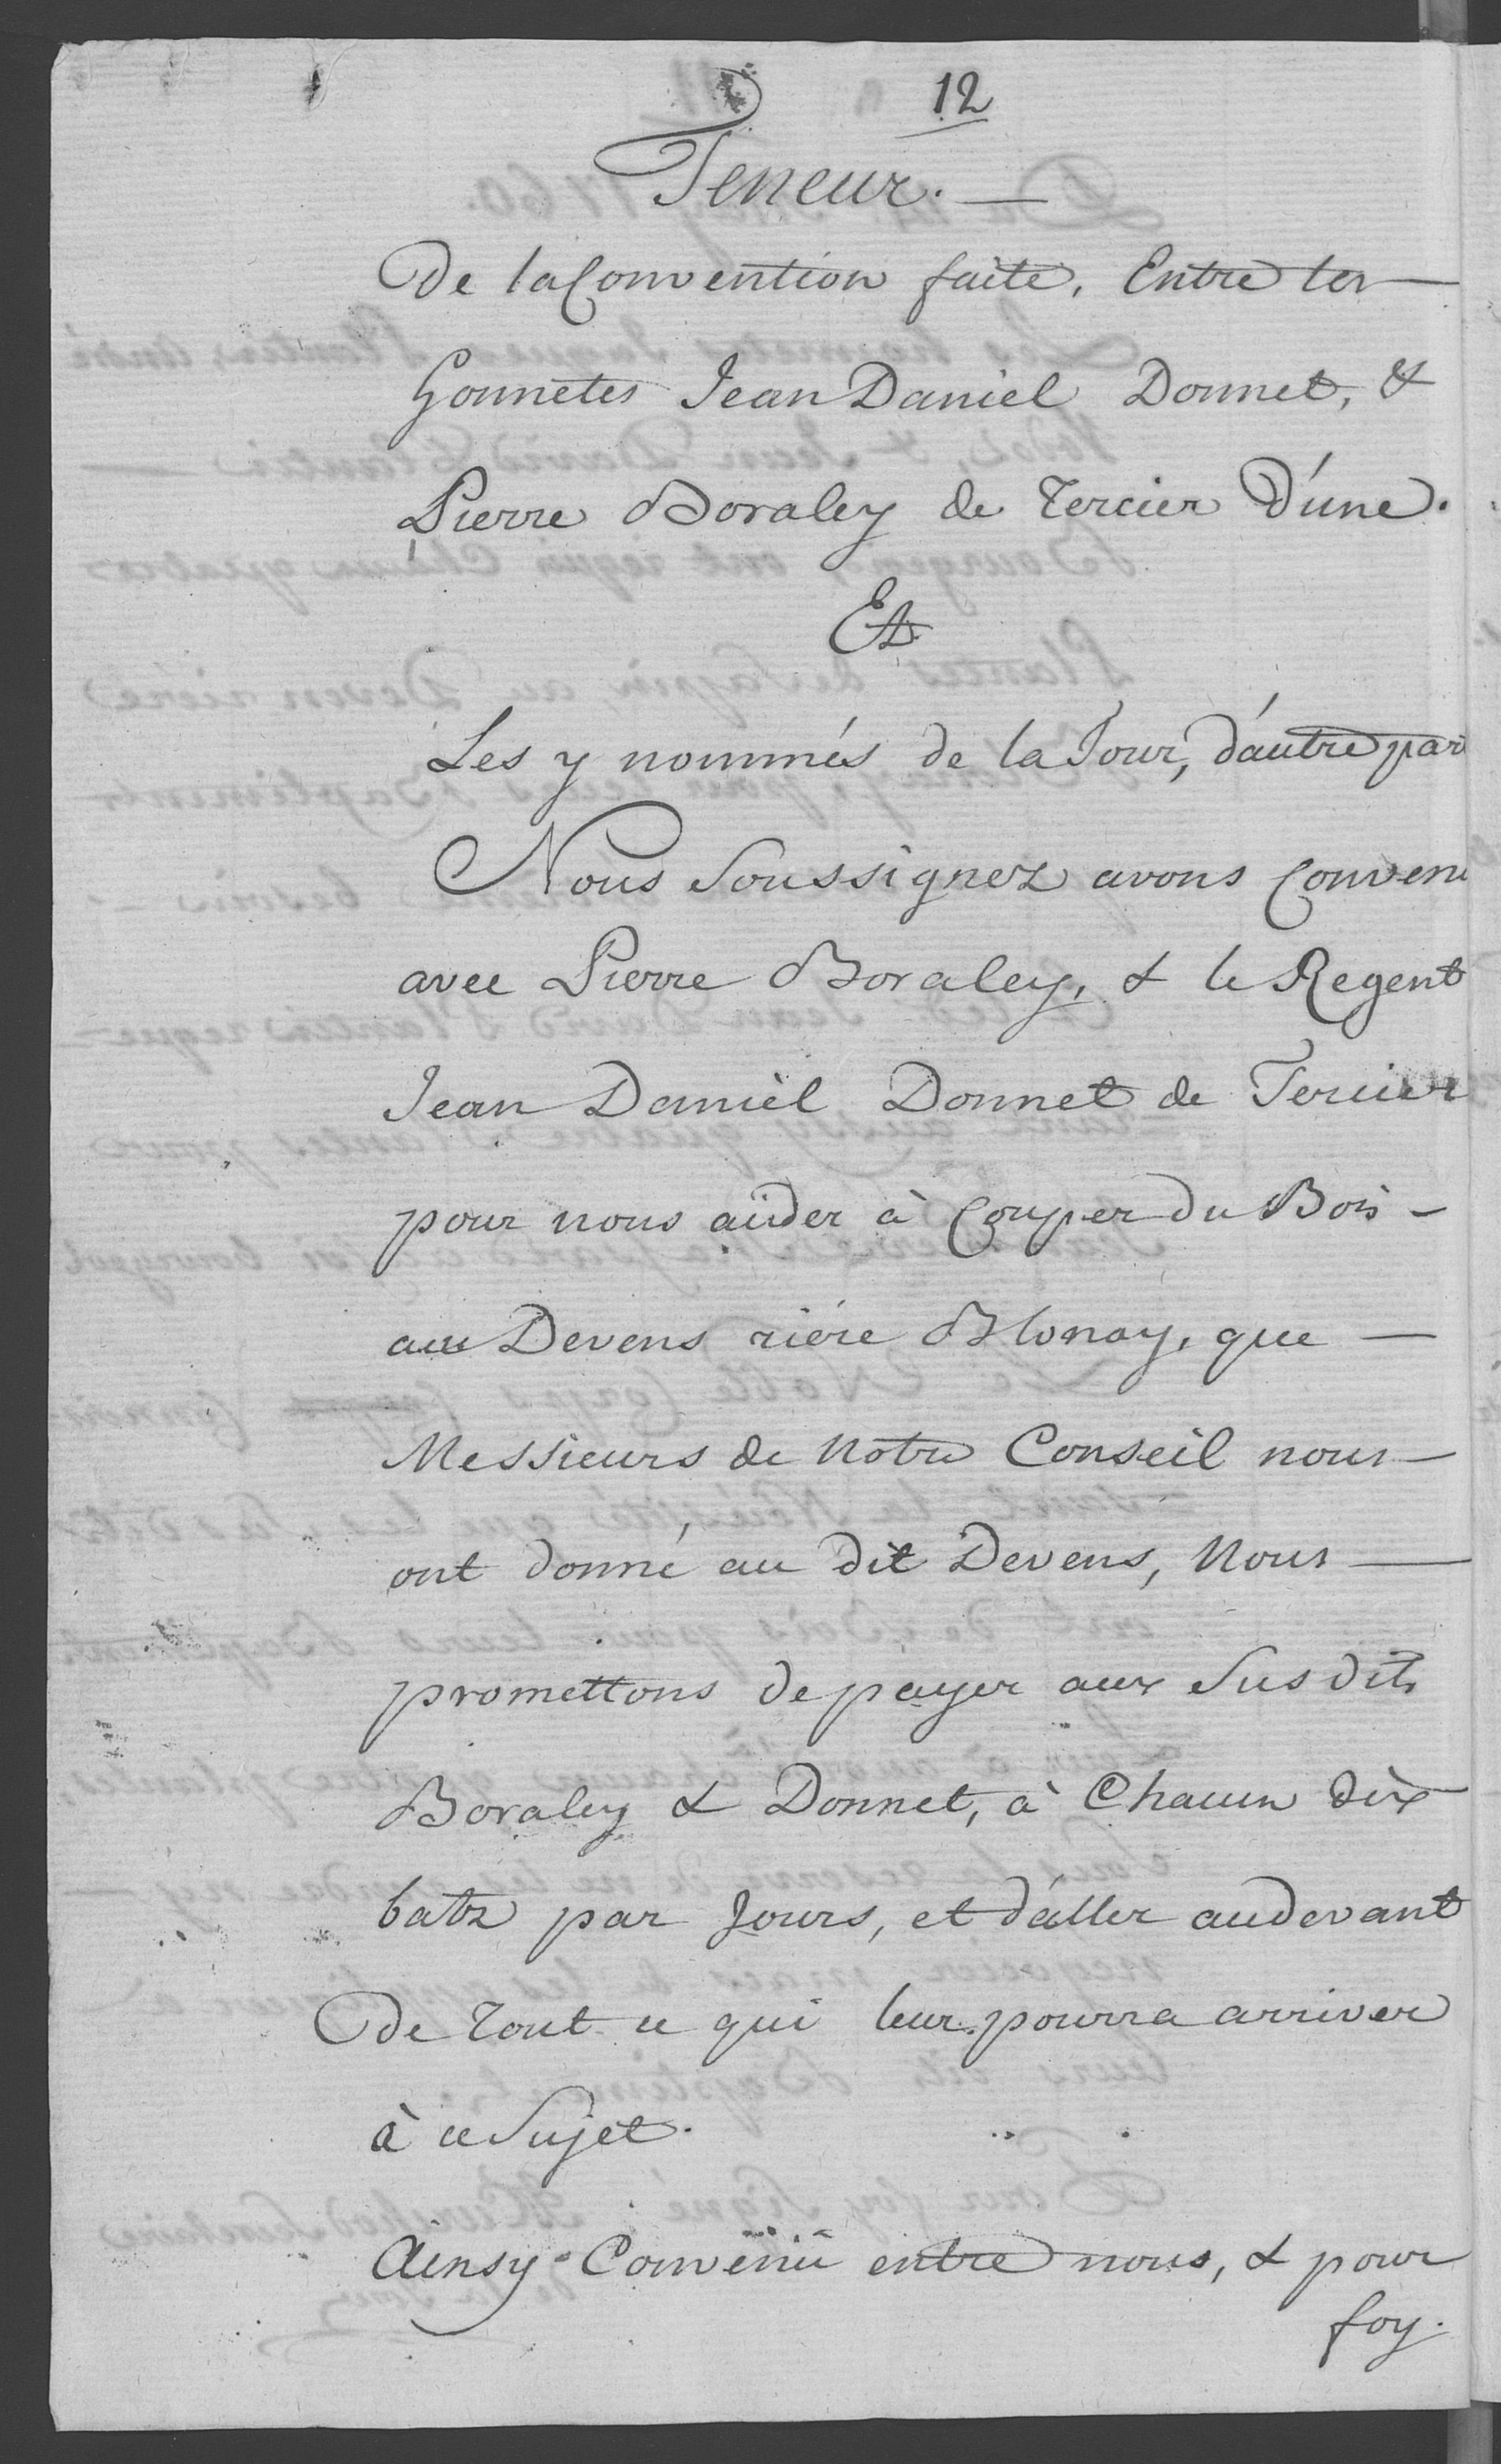 12
Teneur. —
De la Convention faite, Entre les —
honnetes Jean Daniel Donnet, &
Pierre Boraley de Tercier D'une.
Et
Les y nommés de la Tour, d'autre par
Nous Soussignez avons Convenu
avec Pierre Boraley, & le Regent
Jean Daniel Donnet de Tercier
pour nous aider à Couper du Bois -
au Devens riére Blonay, que —
Messieurs de Notre Conseil nous —
ont donné au dit Devens, Nous —
promettons de payer aux Susdits
Boraley & Donnet, à Chacun dix
batz par Jours, et d'aller audevant
de tout ce qui leur pourra arriver
à ce Sujet.
Ainsy Convenu entre nous, & pour
foy.